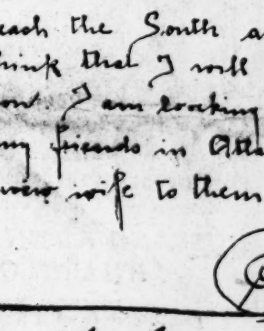 each the South a
hink that I will
on I am looking
my friends in Atla
new wife to them